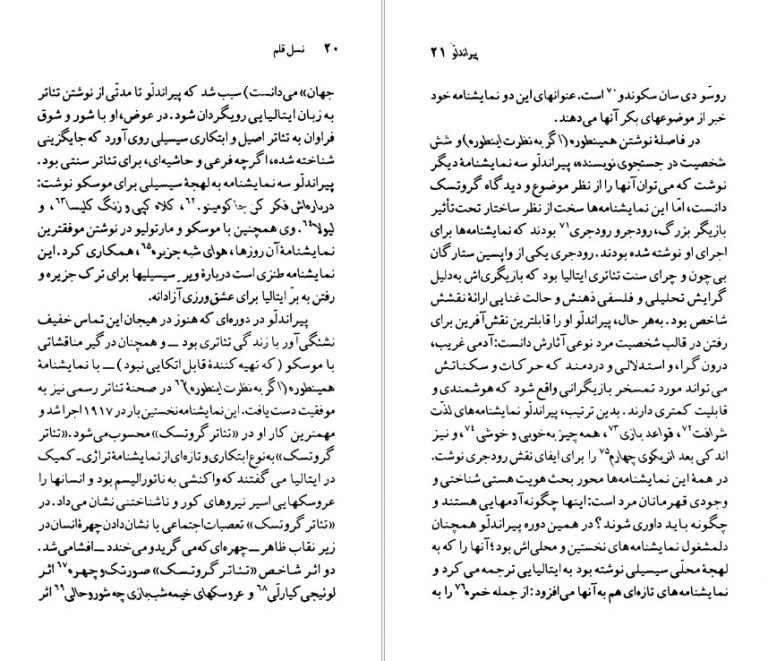 ۲۰ نسل قلم
جهان» می‌دانست) سبب شد که پیراندلّو تا مدتّی از نوشتن تئاتر
به زبان ایتالیایی رویگردان شود. در عوض، او با شور و شوق
فراوان به تئاتر اصیل و ابتکاری سیسیلی روی آورد که جایگزینی
شناخته شده، اگرچه فرعی و حاشیه‌ای، برای تئاتر سنتی بود.
پیراندلّو سه نمایشنامه به لهجهٔ سیسیلی برای موسکو نوشت:
درباره‌اش فکر کن جاکومینو۶۲، کلاه کپی و زنگ کلیسا۶۳، و
لیولا۶۴. وی همچنین با موسکو و مارتولیو در نوشتن موفقترین
نمایشنامهٔ آن روزها، هوای شبه جزیره۶۵، همکاری کرد. این
نمایشنامه طنزی است دربارهٔ ویر سیسیلیها برای ترک جزیره و
رفتن به برّ ایتالیا برای عشق‌ورزی آزادانه.
پیراندلّو در دوره‌ای که هنوز در هیجان این تماس خفیف
نشئگی‌آور با زندگی تئاتری بود ــ و همچنان درگیر مناقشاتی
با موسکو (که تهیه کنندهٔ قابل اتکایی نبود) ــ با نمایشنامهٔ
همینطوره (اگر به نظرت اینطوره)۶۶ در صحنهٔ تئاتر رسمی نیز به
موفقیت دست یافت. این نمایشنامه نخستین بار در ۱۹۱۷ اجرا شد و
مهمترین کار او در «تئاتر گروتسک» محسوب می‌شود. «تئاتر
گروتسک» به نوع ابتکاری و تازه‌ای از نمایشنامهٔ تراژی‌ـ کمیک
در ایتالیا می گفتند که واکنشی به ناتورالیسم بود و انسانها را
عروسکهایی اسیر نیروهای کور و ناشناختنی نشان می‌داد. در
«تئاتر گروتسک» تعصبات اجتماعی با نشان دادن چهرهٔ انسان در
زیر نقاب ظاهر ــ چهره‌ای که می گرید و می خندد ــ افشا می‌شد.
دو اثر شاخص «تئاتر گروتسک» صورتک و چهره۶۷ اثر
لوئیجی کیارلّی۶۸ و عروسکهای خیمه‌شب‌بازی چه شوروحالی۶۹ اثر
پیراندلّو ۲۱
روسّو دی سان سکوندو۷۰ است. عنوانهای این دو نمایشنامه خود
خبر از موضوعهای بکر آنها می‌دهند.
در فاصلهٔ نوشتن همینطوره (اگر به نظرت اینطوره) و شش
شخصیت در جستجوی نویسنده، پیراندلّو سه نمایشنامهٔ دیگر
نوشت که می‌توان آنها را از نظر موضوع و دیدگاه گروتسک
دانست، امّا این نمایشنامه‌ها سخت از نظر ساختار تحت‌تأثیر
بازیگر بزرگ، رودجرو رودجری۷۱ بودند که نمایشنامه‌ها برای
اجرای او نوشته شده بودند. رودجری یکی از واپسین ستارگان
بی‌چون و چرای سنت تئاتری ایتالیا بود که بازیگری‌اش به‌دلیل
گرایش تحلیلی و فلسفی ذهنش و حالت غنایی ارائهٔ نقشش
شاخص بود. به‌هر حال، پیراندلّو او را قابلترین نقش‌آفرین برای
رفتن در قالب شخصیت مرد نوعی آثارش دانست: آدمی غریب،
درون گرا، و استدلالی و دردمند که حرکات و سکناتش
می‌تواند مورد تمسخر بازیگرانی واقع شود که هوشمندی و
قابلیت کمتری دارند. بدین ترتیب، پیراندلّو نمایشنامه‌های لذّت
شرافت۷۲، قواعد بازی۷۳، همه چیز به‌خوبی و خوشی۷۴، و نیز
اندکی بعد انریکوی چهارم۷۵ را برای ایفای نقش رودجری نوشت.
در همهٔ این نمایشنامه‌ها محور بحث هویت هستی شناختی و
وجودی قهرمانان مرد است: اینها چگونه آدمهایی هستند و
چگونه باید داوری شوند؟ در همین دوره پیراندلّو همچنان
دلمشغول نمایشنامه‌های نخستین و محلی‌اش بود؛ آنها را که به
لهجهٔ محلّی سیسیلی نوشته بود به ایتالیایی ترجمه می کرد و
نمایشنامه های تازه‌ای هم به آنها می‌افزود: از جمله خمره۷۶ را به